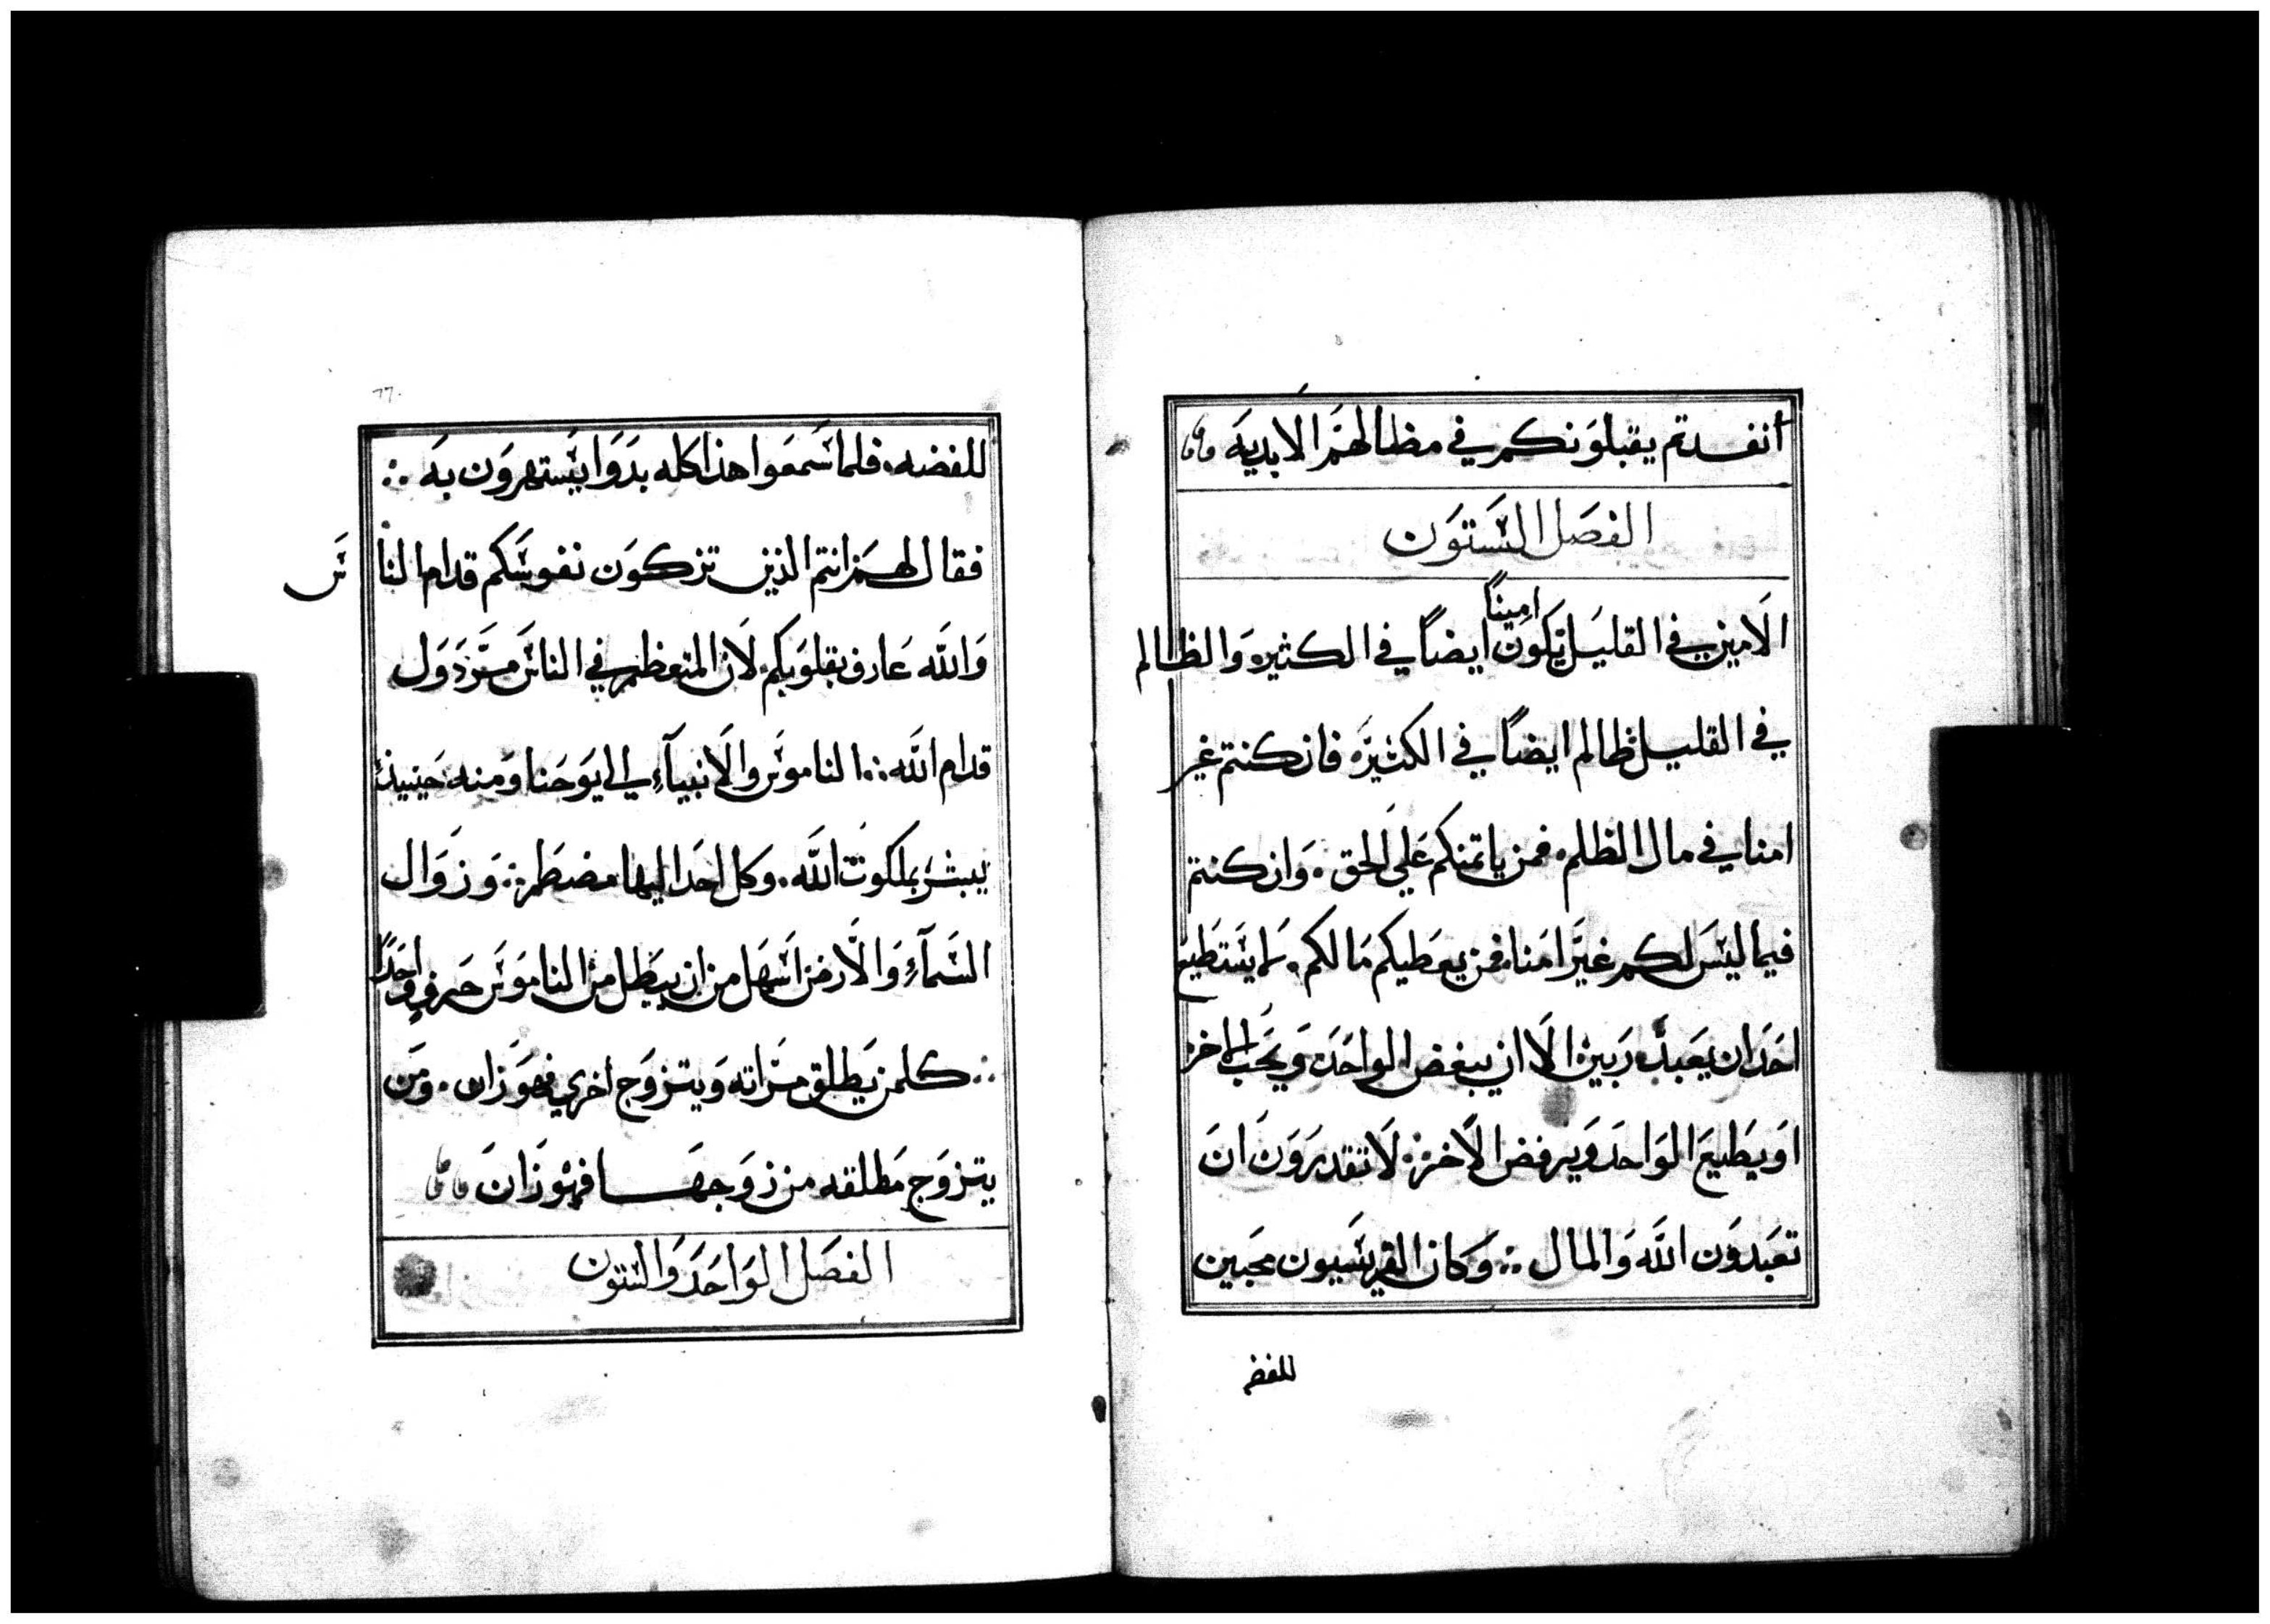 انفدتم يقبلونكم في مظالهم الابديه
الفصل الستون
امينًا
الامين في القليل يكون ايضاً في الكثير والظالم
في القليل ظالم ايضاً في الكثير فان كنتم غير
امنا في مال الظلم فمن ياتمنكم علي الحق وان كنتم
فيما ليس لكم غير امنا فمن يعطيكم مالكم لا يستطيع
احد ان يعبد ربين الا ان يبغض الواحد ويحب الاخر
او يطيع الواحد ويرفض الاخر لا تقدرون ان
تعبدون الله والمال ∴ وكان الفريسيون محبين
للفضه
للفضه فلما سمعوا هذا كله بدوا يستهزون به ∴
فقال لهم انتم الذين تزكون نفوسكم قدام الناس
والله عارف بقلوبكم لان المتعظم في الناس مرذول
قدام الله ∴ الناموس والانبيآء الي يوحنا ومنه حينيذ
يبشر بملكوت الله وكل احد اليها مضطر ∴ وزوال
السمآء والارض اسهل من ان يبطل من الناموس حرف واحدًا
∴ كلمن يطلق مراته ويتزوج اخري فهو زان ومن
يتزوج مطلقه من زوجها فهو زان
الفصل الواحد والستون